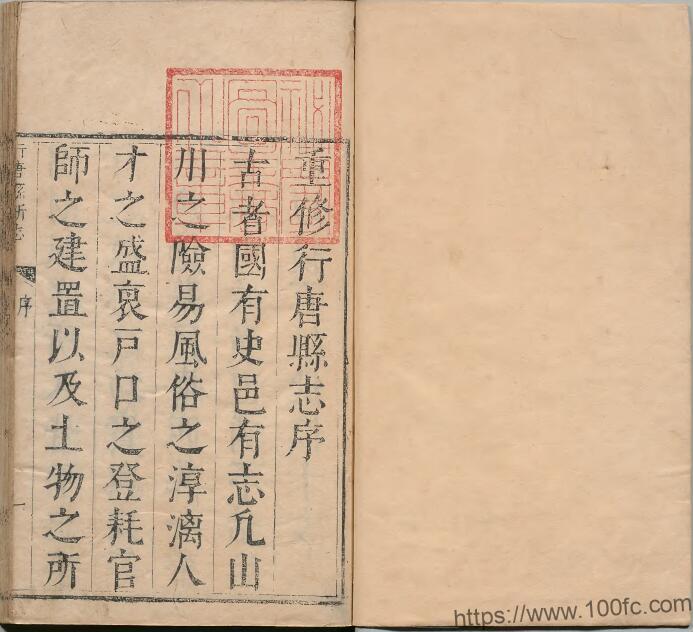 重修行唐縣志序
古者國有史邑有志凡山
川之險易風俗之淳漓人
才之盛衰戸口之登耗官
師之建置以及土物之所
行唐縣新志
序
一
https://www.100fc.com